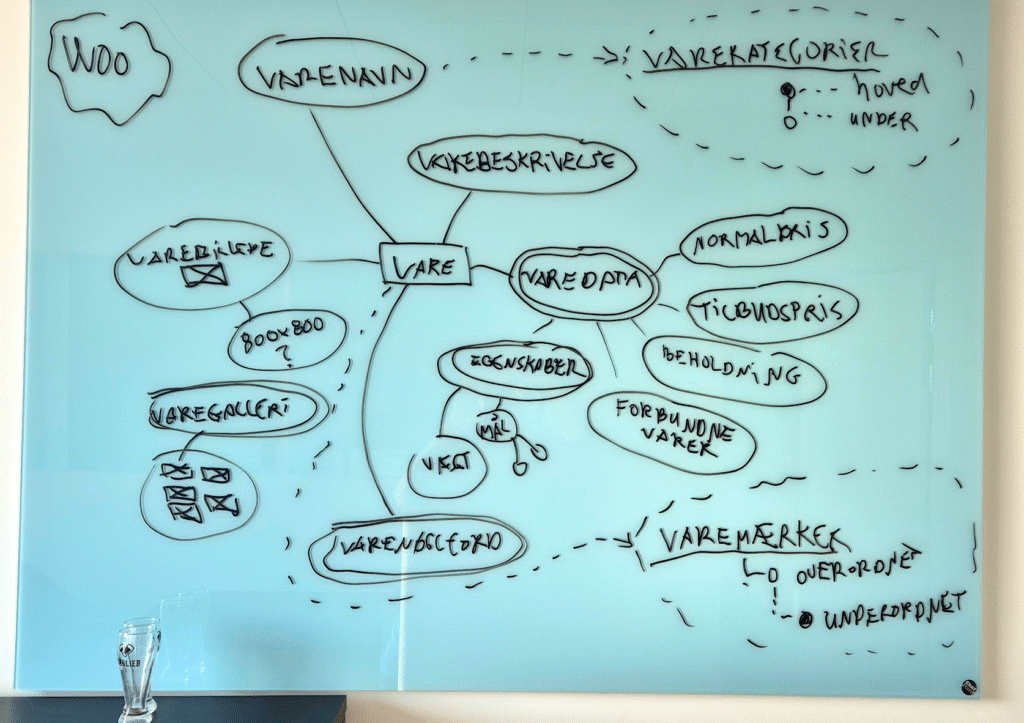 WOO
VARENAVN
VAREKATEGORIER
hoved
UNDER
VAREBESKRIVELSE
VAREBILLEDE
VARE
VAREDATA
NORMALPRIS
TILBUDSPRIS
BEHOLDNING
FORBUNDNE
VARER
800x800
?
EGENSKABER
MÅL
VÆGT
VAREGALLERI
VARENØGLEORD
VAREMÆRKER
OVERORDNET
UNDERORDNET